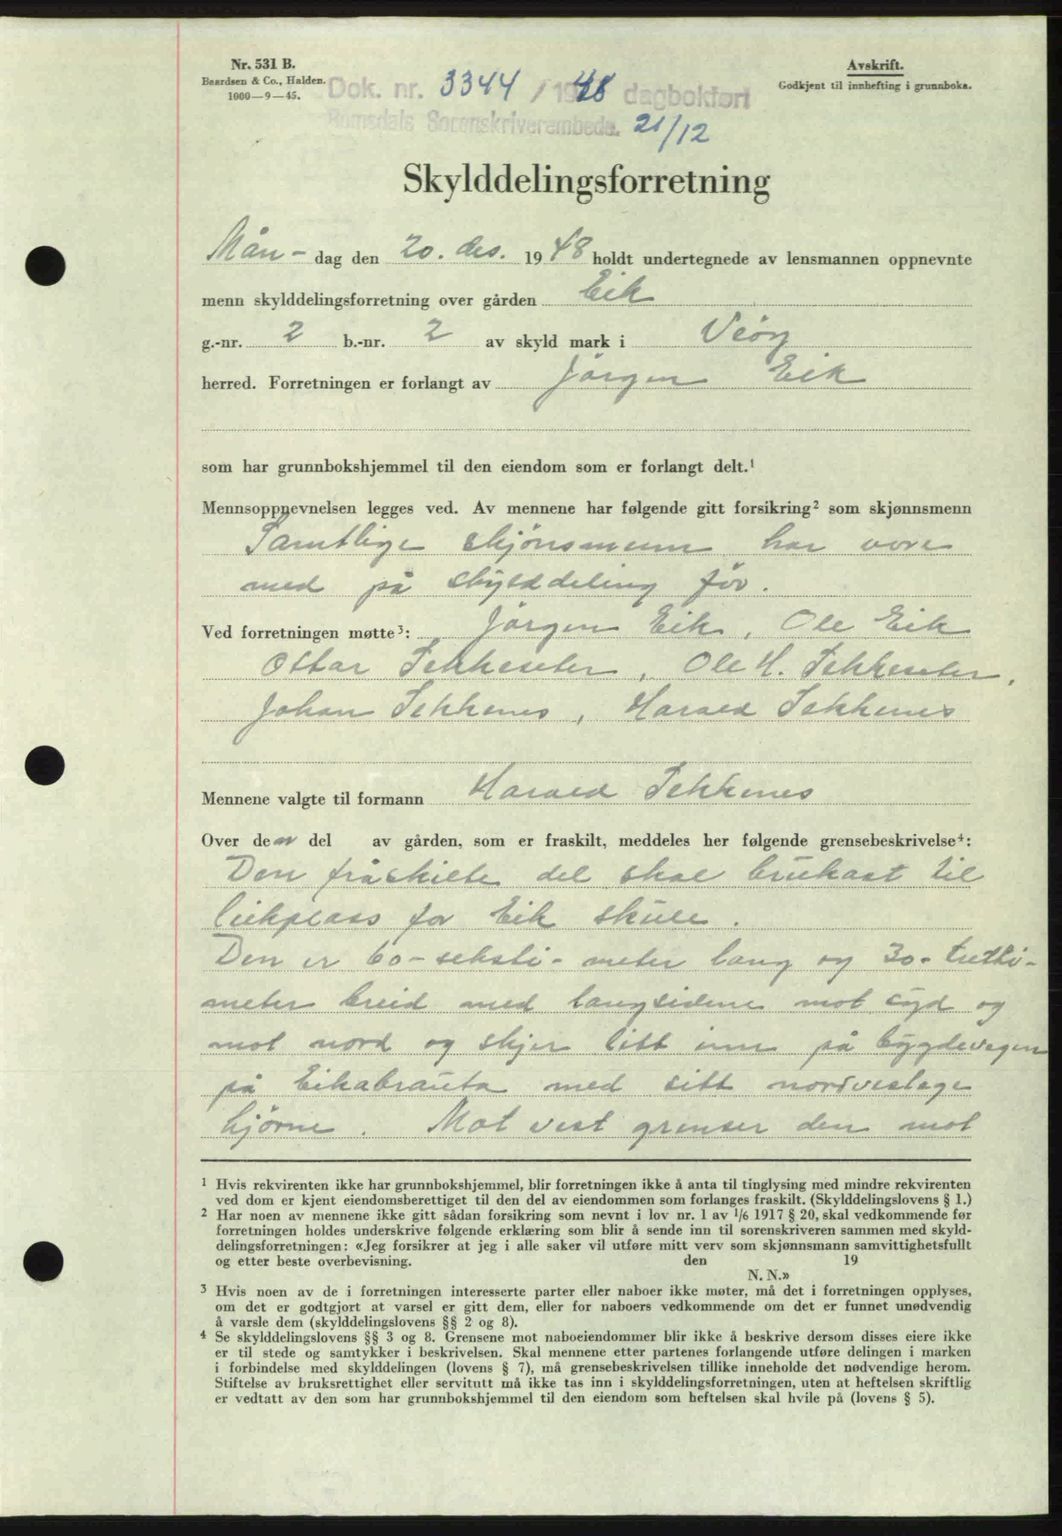 Nr. 531 B.
Baardsen & Co., Halden.
1000—9—45.
Avskrift.
Godkjent til innhefting i grunnboka.
Dok. nr. 3344 / 1948 dagbokført
Romsdals Sorenskriverembede. 21/12
Skylddelingsforretning
Mån- dag den 20. des. 1948 holdt undertegnede av lensmannen oppnevnte
menn skylddelingsforretning over gården Eik
g.-nr. 2 b.-nr. 2 av skyld mark i Veöy
herred. Forretningen er forlangt av Jörgen Eik
som har grunnbokshjemmel til den eiendom som er forlangt delt.¹
Mennsoppnevnelsen legges ved. Av mennene har følgende gitt forsikring² som skjønnsmenn
Samtlige skjönsmenn har vore
med på skylddeling för.
Ved forretningen møtte³: Jörgen Eik, Ole Eik
Ottar Sekkeseter, Ole H. Sekkeseter,
Johan Sekkenes, Harald Sekkenes
Mennene valgte til formann Harald Sekkenes
Over den del av gården, som er fraskilt, meddeles her følgende grensebeskrivelse⁴:
Den fråskilte del skal brukast til
leikplass for Eik skule.
Den er 60-seksti-meter lang og 30-tretti-
meter breid med langsidene mot syd og
mot nord og skjer litt inn på bygdevegen
på Eikabrauta med sitt nordvestlege
hjörne. Mot vest grenser den mot
¹ Hvis rekvirenten ikke har grunnbokshjemmel, blir forretningen ikke å anta til tinglysing med mindre rekvirenten
ved dom er kjent eiendomsberettiget til den del av eiendommen som forlanges fraskilt. (Skylddelingslovens § 1.)
² Har noen av mennene ikke gitt sådan forsikring som nevnt i lov nr. 1 av 1/6 1917 § 20, skal vedkommende før
forretningen holdes underskrive følgende erklæring som blir å sende inn til sorenskriveren sammen med skyld-
delingsforretningen: «Jeg forsikrer at jeg i alle saker vil utføre mitt verv som skjønnsmann samvittighetsfullt
og etter beste overbevisning. den 19
N. N.»
³ Hvis noen av de i forretningen interesserte parter eller naboer ikke møter, må det i forretningen opplyses,
om det er godtgjort at varsel er gitt dem, eller for naboers vedkommende om det er funnet unødvendig
å varsle dem (skylddelingslovens §§ 2 og 8).
⁴ Se skylddelingslovens §§ 3 og 8. Grensene mot naboeiendommer blir ikke å beskrive dersom disses eiere ikke
er til stede og samtykker i beskrivelsen. Skal mennene etter partenes forlangende utføre delingen i marken
i forbindelse med skylddelingen (lovens § 7), må grensebeskrivelsen tillike inneholde det nødvendige herom.
Stiftelse av bruksrettighet eller servitutt må ikke tas inn i skylddelingsforretningen, uten at heftelsen skriftlig
er vedtatt av den som har grunnbokshjemmel til den eiendom som heftelsen skal hvile på (lovens § 5).